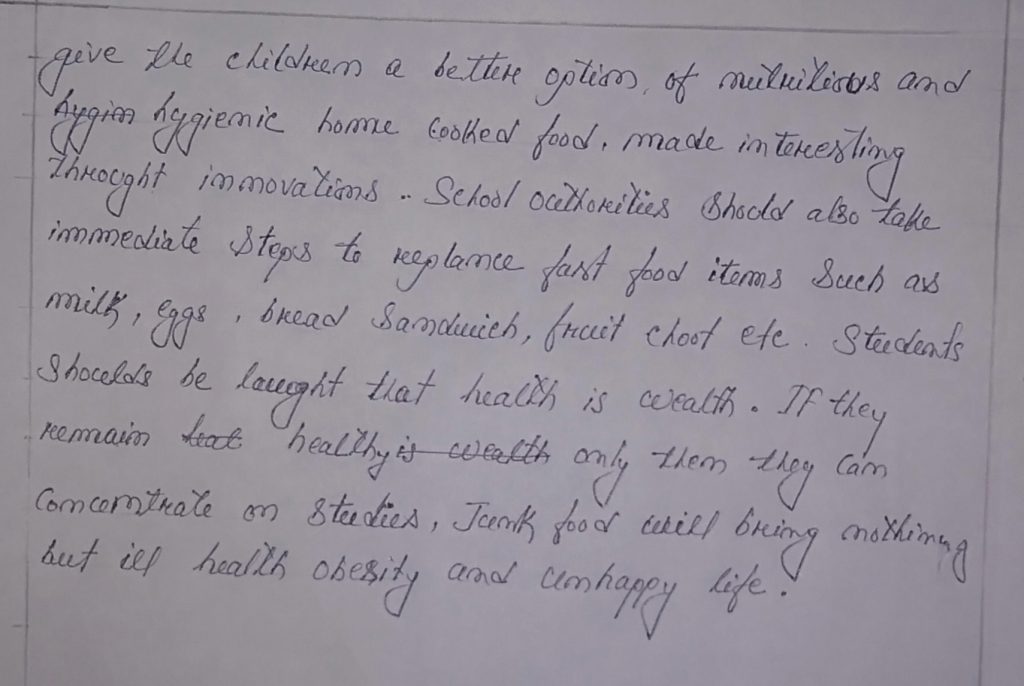 give the children a better option, of nutritious and
hygien hygienic home cooked food, made interesting
throught innovations.. School authorities should also take
immediate steps to replance fast food items such as
milk, eggs, bread sandwich, fruit choot etc. Students
shoulds be taught that health is wealth. If they
remain heat healthy is wealth only then they can
concentrate on studies, Junk food will bring nothing
but ill health obesity and unhappy life.